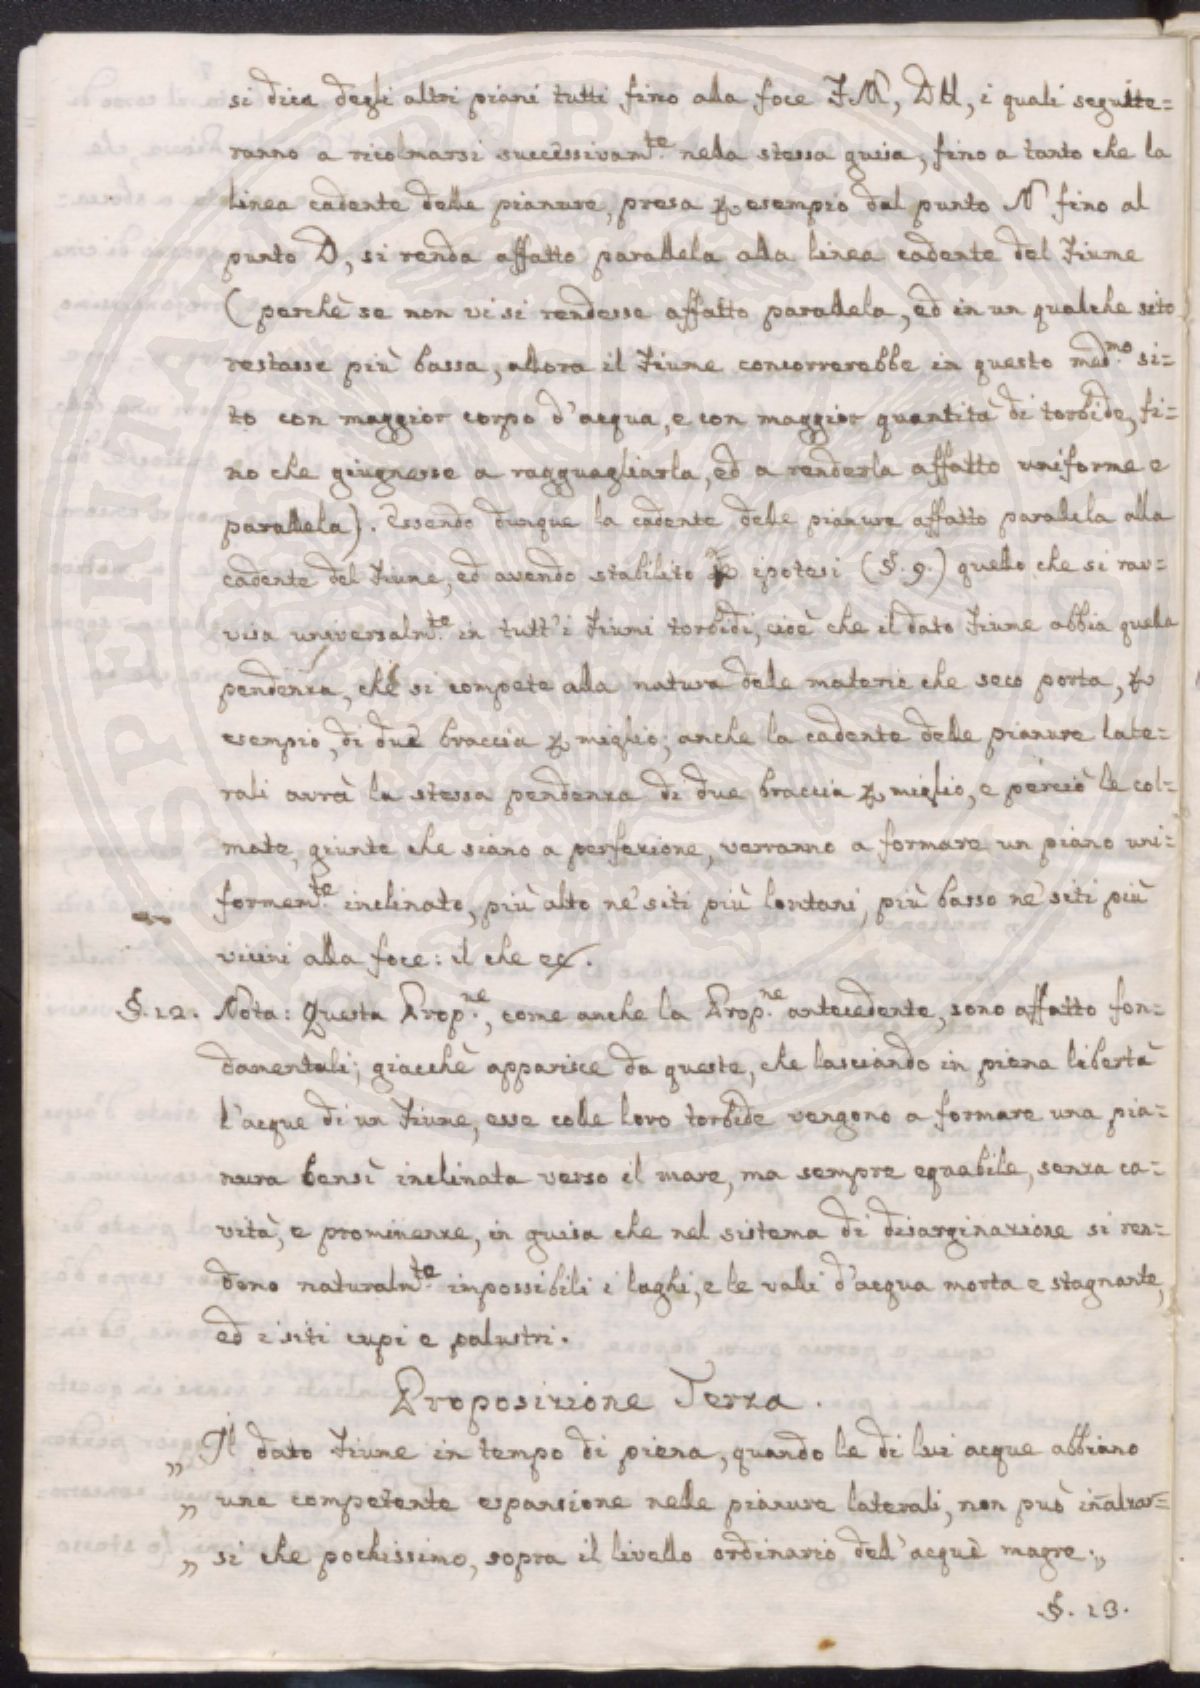 si dica degli altri piani tutti fino alla foce IM, DH, i quali seguite=
ranno a ricolmarsi successivam.te nella stessa guisa, fino a tanto che la
linea cadente delle pianure, presa ꝑ esempio dal punto N fino al
punto D, si renda affatto parallela alla linea cadente del Fiume
(perchè se non vi si rendesse affatto parallela, ed in un qualche sito
restasse più bassa, allora il Fiume concorrerebbe in questo med.mo si=
to con maggior corpo d'acqua, e con maggior quantità di torbide, fi=
no che giugnesse a ragguagliarla, ed a renderla affatto uniforme e
parallela). Essendo dunque la cadente delle pianure affatto parallela alla
cadente del Fiume, ed avendo stabilito ꝑ ipotesi (§. 9.) quello che si rav=
visa universalm.te in tutt'i Fiumi torbidi, cioè che il dato Fiume abbia quella
pendenza, che si compete alla natura delle materie che seco porta, ꝑ
esempio, di due braccia ꝑ miglio; anche la cadente delle pianure late=
rali avrà la stessa pendenza di due braccia ꝑ miglio, e perciò le col=
mate, giunte che siano a perfezione, verranno a formare un piano uni=
formem.te inclinato, più alto ne' siti più lontani, più basso ne' siti più
vicini alla foce: il che &c.
§. 12. Nota: Questa Prop.ne, come anche la Prop.ne antecedente, sono affatto fon=
damentali; giacchè apparisce da queste, che lasciando in piena libertà
l'acque di un Fiume, esse colle loro torbide vengono a formare una pia=
nura bensì inclinata verso il mare, ma sempre equabile, senza ca=
vità, e prominenze, in guisa che nel sistema di disarginazione si ren=
dono naturalm.te impossibili i laghi, e le valli d'acqua morta e stagnante,
ed i siti cupi e palustri.
Proposizione Terza.
„ Il dato Fiume in tempo di piena, quando le di lui acque abbiano
„ una competente espansione nelle pianure laterali, non può inalzar=
„ si che pochissimo, sopra il livello ordinario dell'acque magre. „
§. 13.